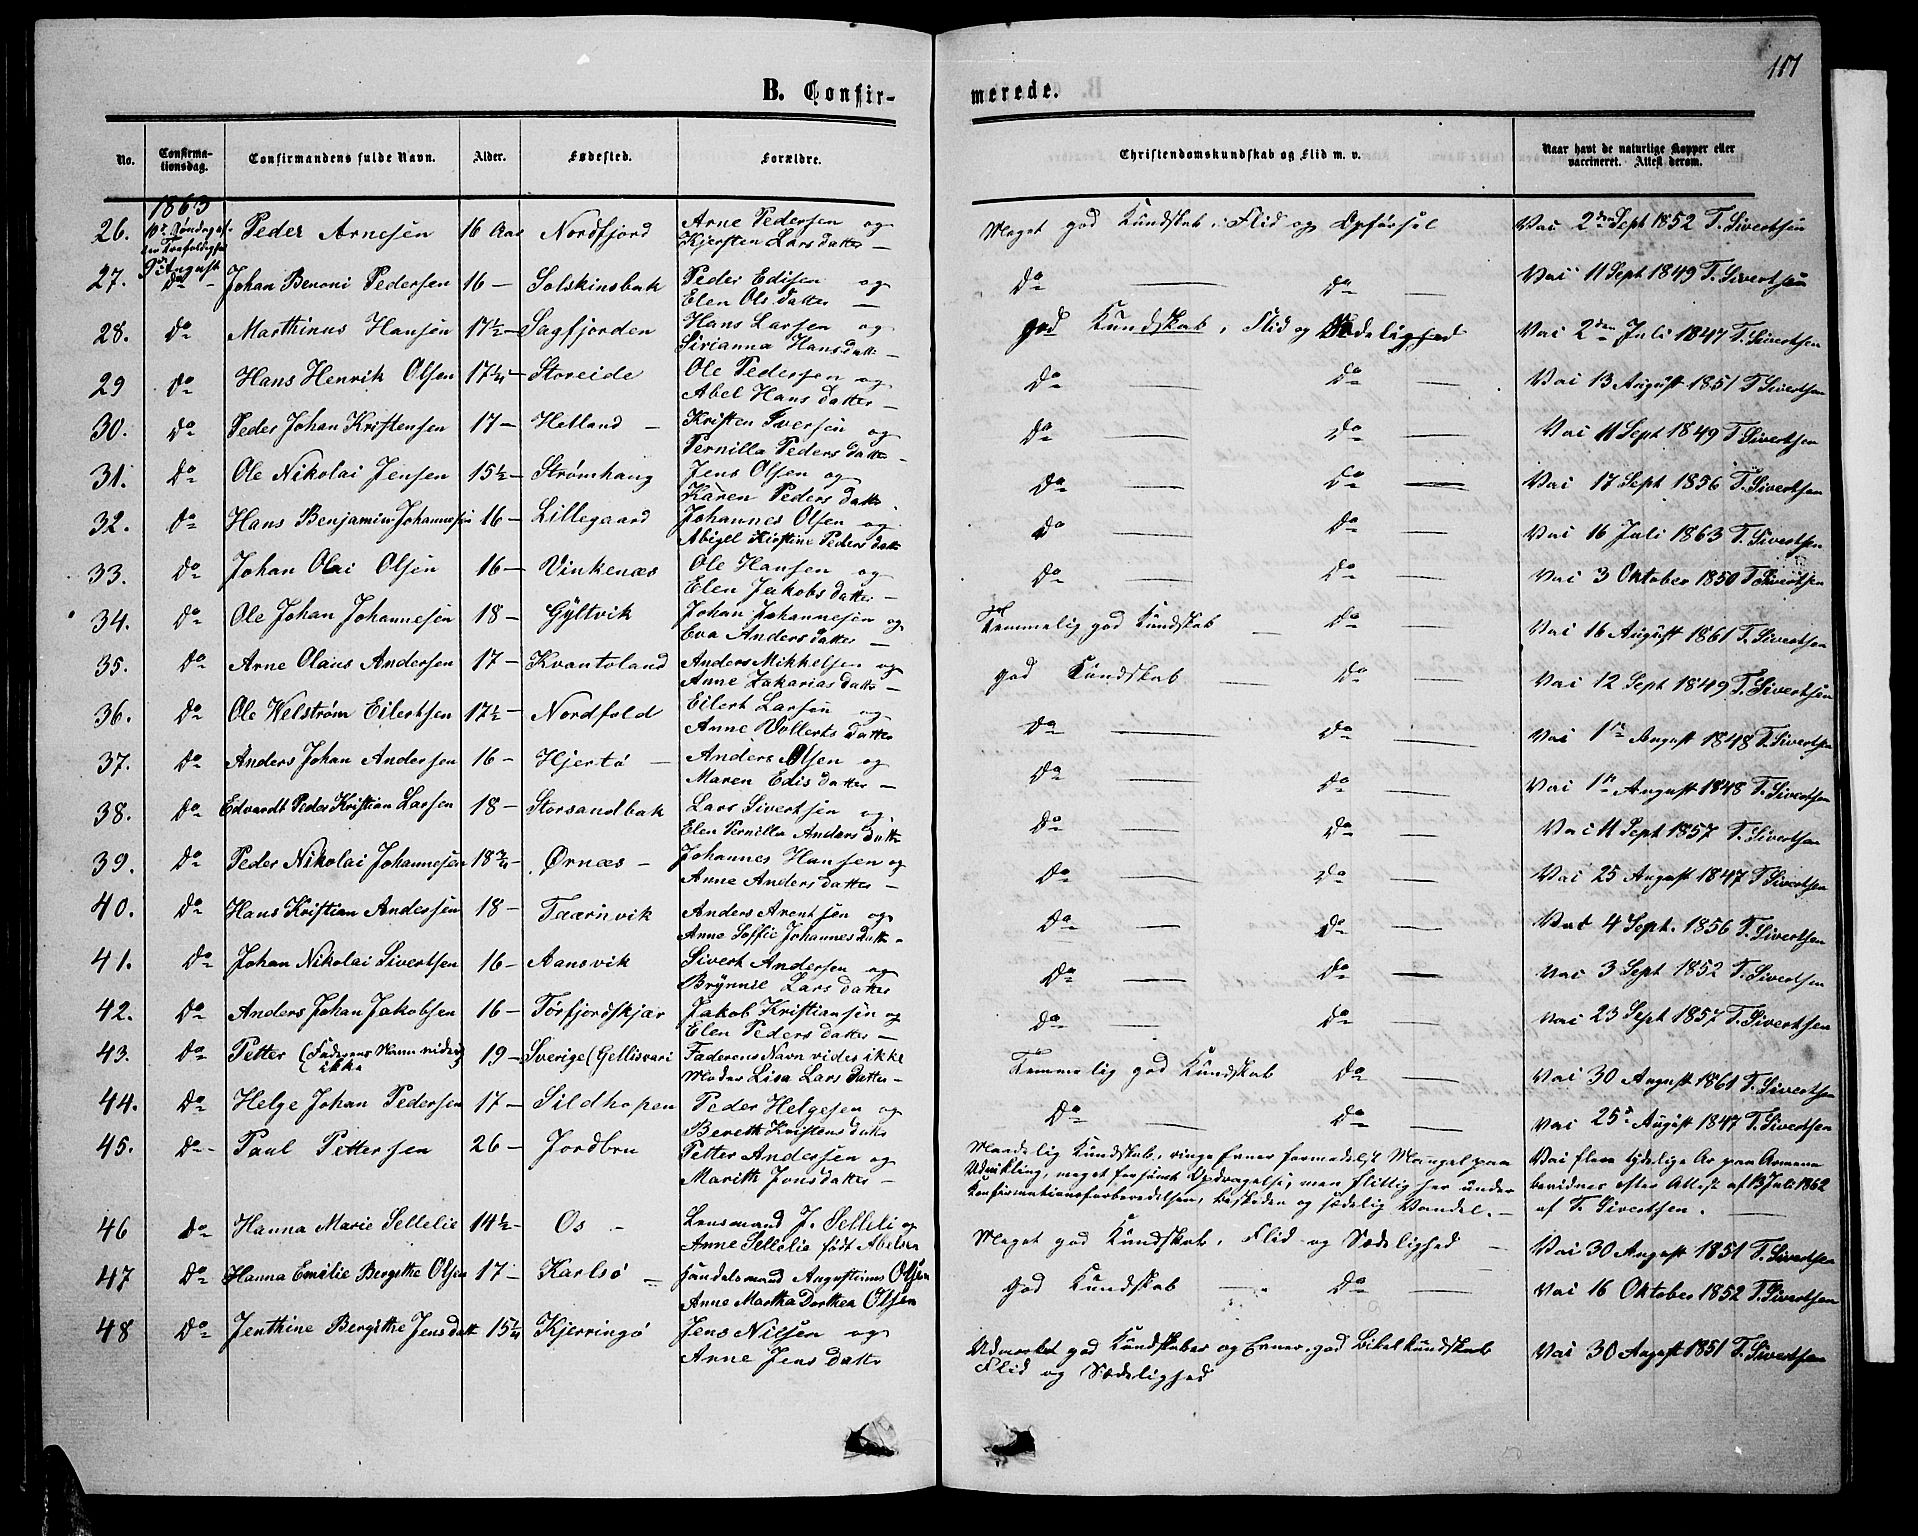 111
B. Confir-
merede.
No.
Confirma-
tionsdag.
Confirmandens fulde Navn.
Alder.
Fødested.
Forældre.
Christendomskundskab og Flid m. v.
Naar havt de naturlige Kopper eller
vaccineret. Attest derom.
1863
26. Peder Arnesen 16 Aar Nordfjord Arne Pedersen og Meget god Kundskab, Flid og Opførsel Vac 2den Sept 1852 T. Sivertsen
9de August Kjersten Larsdatter —
27. Do Johan Benoni Pedersen 16 — Solskinsbak Peder Edisen og Do — Do — Vac 11 Sept 1849 T. Sivertsen
Elen Olsdatter —
28. Do Marthinus Hansen 17½ — Sagfjorden Hans Larsen og god Kundskab, Flid og Sædelighed Vac 2den Juli 1847 T. Sivertsen
Sirianna Hansdatter —
29 Do Hans Henrik Olsen 17¼ Storeide Ole Pedersen og Do — Do — Vac 13 August 1851 T. Sivertsen
Abel Hansdatter —
30. Do Peder Johan Kristensen 17 — Helland — Kristen Iversen og Do — Do — Vac 11 Sept 1849 T. Sivertsen
Pernilla Pedersdatter —
31. Do Ole Nikolai Jensen 15½ — Strømhaug Jens Olsen og Do — Do — Vac 17 Sept 1856 T. Sivertsen
Karen Pedersdatter
32. Do Hans Benjamin Johannesen 16 — Lillegaard Johannes Olsen og Do — Do — Vac 16 Juli 1863 T. Sivertsen
Abigel Kirstine Pedersdatter
33. Do Johan Olai Olsen 16 — Vinkenæs Ole Hansen og Do — Do — Vac 3 Oktober 1850 T. Sivertsen
Elen Jakobsdatter —
34. Do Ole Johan Johannesen 18 — Gyltvik Johan Johannesen og Temmelig god Kundskab — Do — Vac 16 August 1861 T. Sivertsen
Eva Andersdatter —
35. Do Arne Olaus Andersen 17 — Kvantoland Anders Mikkelsen og god Kundskab — Do — Vac 12 Sept 1849 T. Sivertsen
Anne Zakariasdatter —
36. Do Ole Welstrøm Eilertsen 17½ — Nordfold Eilert Larsen og Do — Do — Vac 1ste August 1848 T. Sivertsen
Anne Vollertsdatter
37. Do Anders Johan Andersen 16 — Hjertø — Anders Olsen og Do — Do — Vac 1ste August 1848 T. Sivertsen
Maren Edisdatter —
38. Do Edvardt Peder Kristian Larsen 18 — Storsandbak Lars Sivertsen og Do — Do — Vac 11 Sept 1857 T. Sivertsen
Elen Pernilla Andersdatter
39. Do Peder Nikolai Johannesen 18¾ — Ørnæs — Johannes Hansen og Do — Do — Vac 25 August 1847 T. Sivertsen
Anne Andersdatter —
40. Do Hans Kristian Andersen 18 — Taarnvik Anders Arentsen og Do — Do — Vac 4 Sept. 1856 T. Sivertsen
Anne Soffie Johannesdatter —
41. Do Johan Nikolai Sivertsen 16 — Aansvik Sivert Andersen og Do — Do — Vac 3 Sept 1852 T. Sivertsen
Brynnil Larsdatter
42. Do Anders Johan Jakobsen 16 — Tørfjordskjær Jakob Kristiansen og Do — Do — Vac 23 Sept 1857 T. Sivertsen
Elen Pedersdatter —
43. Do Petter (Faderens Navn vides 19 — Sverige (Gellisvari Faderens Navn vides ikke Temmelig god Kundskab Do — Vac 30 August 1861 T. Sivertsen
ikke Moder Lisa Larsdatter —
44. Do Helge Johan Pedersen 17 — Sildhopen Peder Helgesen og Do — Do — Vac 25de August 1847 T. Sivertsen
Bereth Kristensdatter
45. Do Paul Pettersen 26 — Jordbru Petter Andersen og Maadelig Kundskab, ringe Evner formedelst Mangel paa Vac flere tydelige Ar paa Armene
Marith Jonsdatter — Udvikling, meget forsømt Opdragelse, men flittig her under bevidnes efter Attest af 13 Juli 1862
Konfirmationsforberedelsen, beskeden og sædelig Vandel. — af T. Sivertsen. —
46 Do Hanna Marie Sellelie 14½ — Os — Lensmand J. Selleli og Meget god Kundskab, Flid og Sædelighed — Vac 30 August 1851 T. Sivertsen
Anne Sellelie født Abelsen
47 Do Hanna Emilie Bergithe Olsen 17 — Karlsø — Handelsmand Augustinus Olsen god Kundskab — Do — Vac 16 Oktober 1852 T. Sivertsen
Anne Martha Dorthea Olsen
48 Do Jenthine Bergithe Jensdatt 15¼ Kjerringø Jens Nilsen og Udmærket god Kundskaber og Evner, god Bibelkundskab Vac 30 August 1851 T. Sivertsen
Anne Jensdatter Flid og Sædelighed